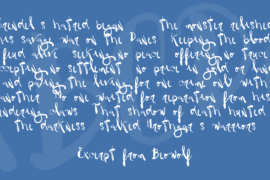 Grendel s hatred began The monster relished
his savage war on the Danes Keeping the blood
feud alive seeking no peace offering no truce
accepting no settlement no price in gold or land
and paying the living for one crime only with
another No one waited for reparation from his
plundering claws That shadow of death hunted
in the darkness stalked Hrothgar s warriors
Excerpt from Beowolf